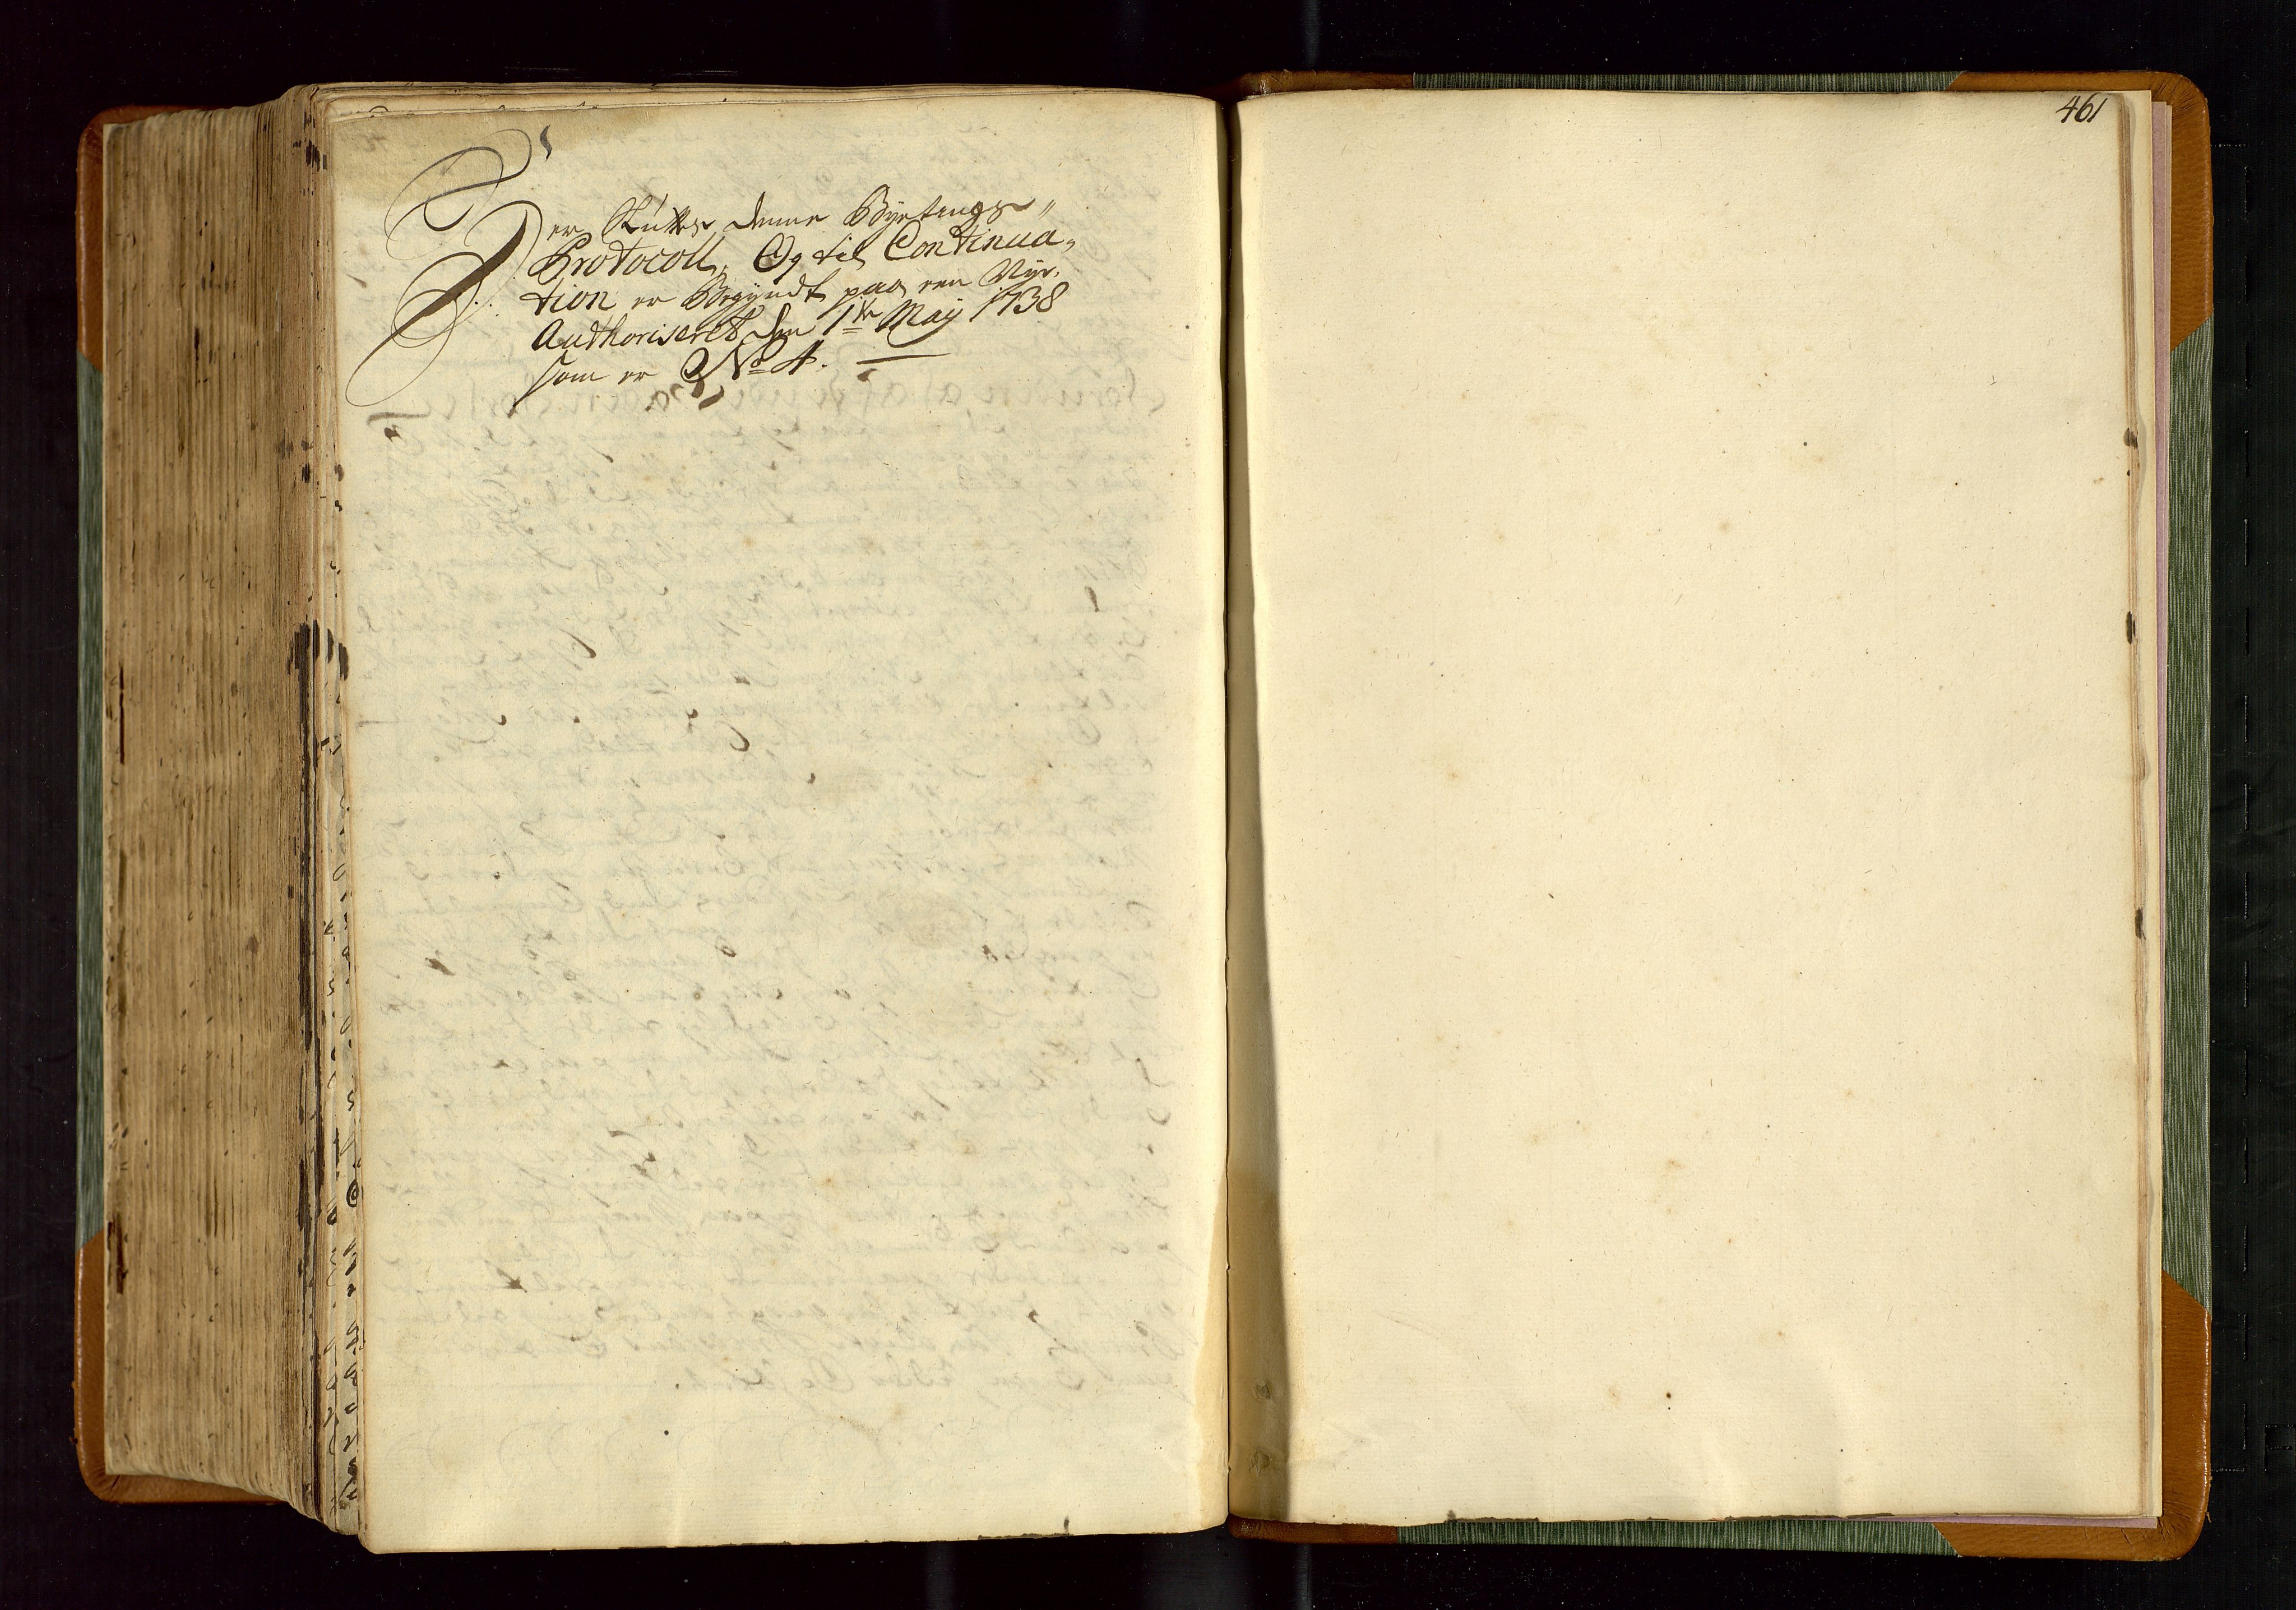 Her Slutter denne Byetings„
Protocoll, Og til Continua„
tion er Begyndt paa een Nye.
Authoriseret den 1te Maÿ 1738
som er No 4.
461